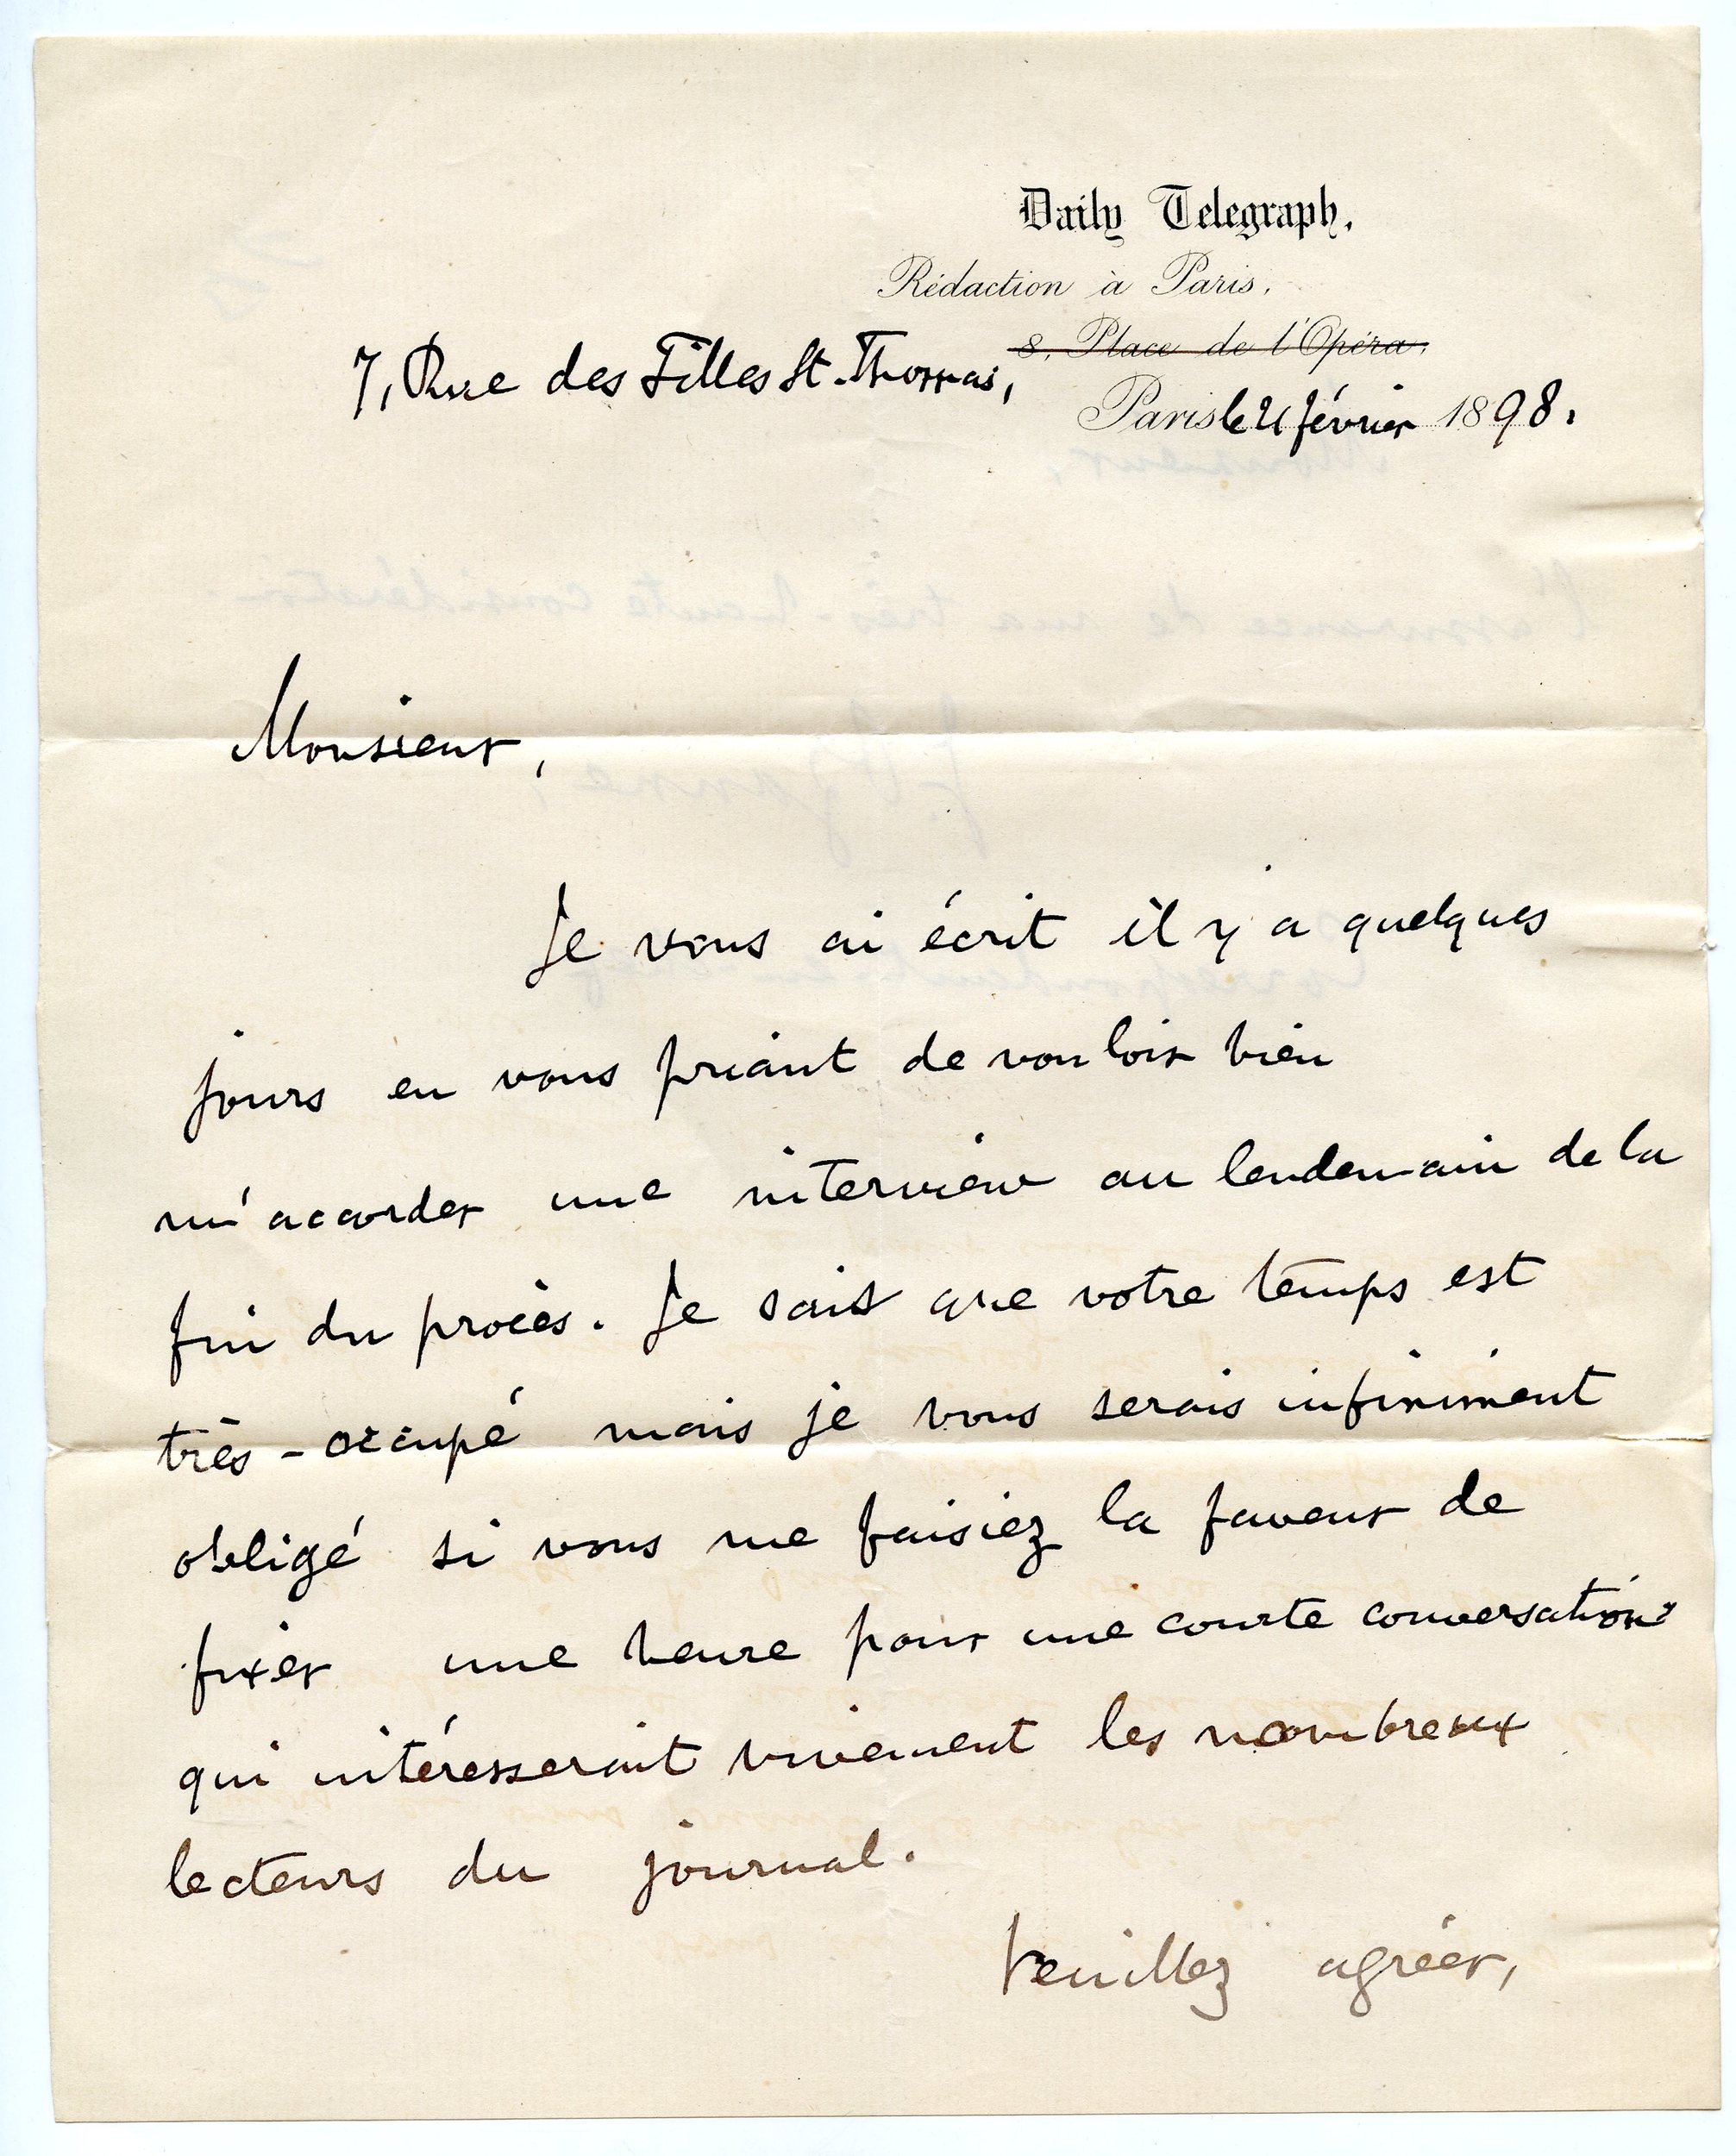 Daily Telegraph.
Rédaction à Paris.
8, Place de l'Opéra.
7, Rue des Filles St. Thomas,
Paris le 21 février 1898.
Monsieur,
Je vous ai écrit il y a quelques
jours en vous priant de vouloir bien
m'accorder une interview au lendemain de la
fin du procès. Je sais que votre temps est
très-occupé mais je vous serais infiniment
obligé si vous me faisiez la faveur de
fixer une heure pour une courte conversation
qui intéresserait vivement les nombreux
lecteurs du journal.
Veuillez agréer,